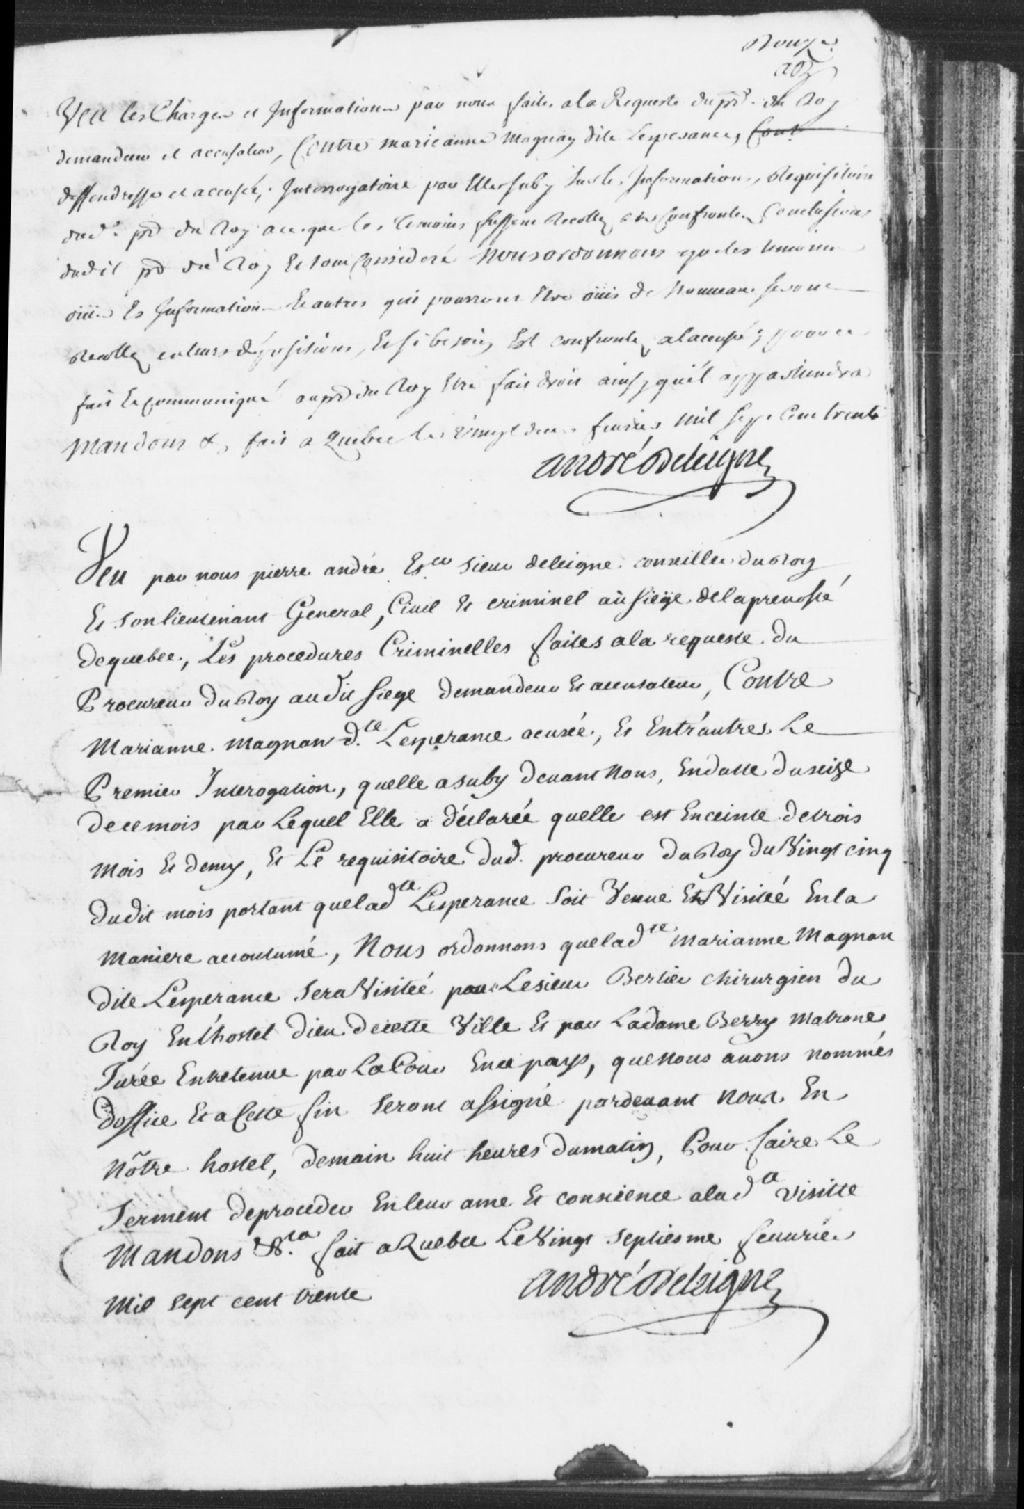 Veu les Charges et Informations par nous faites a la Requeste du prr. du Roy
demandeur et accusateur, Contre marie anne magnan dite Lesperance,
deffendresse et accusée, Interrogatoire par Elle suby Sur les Informations, Requisitoire
dud. prr du Roy a ce que les temoins fussent Recollez et Confrontez Conclusions
dudit prr du Roy Et tout Consideré Nous ordonnons que les temoins
oüis Es Informations Et autres qui pourront Etre oüis de Nouveau seront
Recollez en leurs depositions, Et si besoin Est confrontez a l'accusée; pour ce
fait Et communiqué au prr du Roy Etre fait droit ainsy qu'il appartiendra
Mandons &, fait a Quebec le Vingt deux feuvrier Mil Sept Cent trente
André Deleigne
Veu par nous pierre andré Escer sieur deleigne conseiller du Roy
Et son lieutenant General, Civil Et criminel au Siege de la prevosté
de quebec, Les procedures Criminelles faites a la requeste du
Procureur du Roy au dit siege demandeur Et accusateur, Contre
Marianne Magnan d.te Lesperance acusée, Et Entr'autres Le
Premier Interogation, quelle a suby devant Nous, En datte du seize
de ce mois par Lequel Elle a déclarée quelle est Enceinte de trois
mois Et demy, Et Le requisitoire dud. procureur du Roy du Vingt cinq
dudit mois portant que lad.te Lesperance soit Veüe Et Visitée En la
maniere accoutumé, Nous ordonnons que lad.te Marianne Magnan
dite Lesperance sera Visitée par Le sieur Bertier chirurgien du
Roy En l'hostel dieu de cette Ville Et par La dame Berry Matrone
Jurée Entretenue par La Cour En ce pays, que nous avons nommés
d'office Et a Cette fin seront assigné pardevant nous En
nôtre hostel, demain huit heures du matin, Pour faire Le
serment de proceder En leur ame Et conscience a lad.te visitte
Mandons &.ca fait a Quebec Le Vingt septiesme feuvrier
Mil sept cent trente
André Deleigne